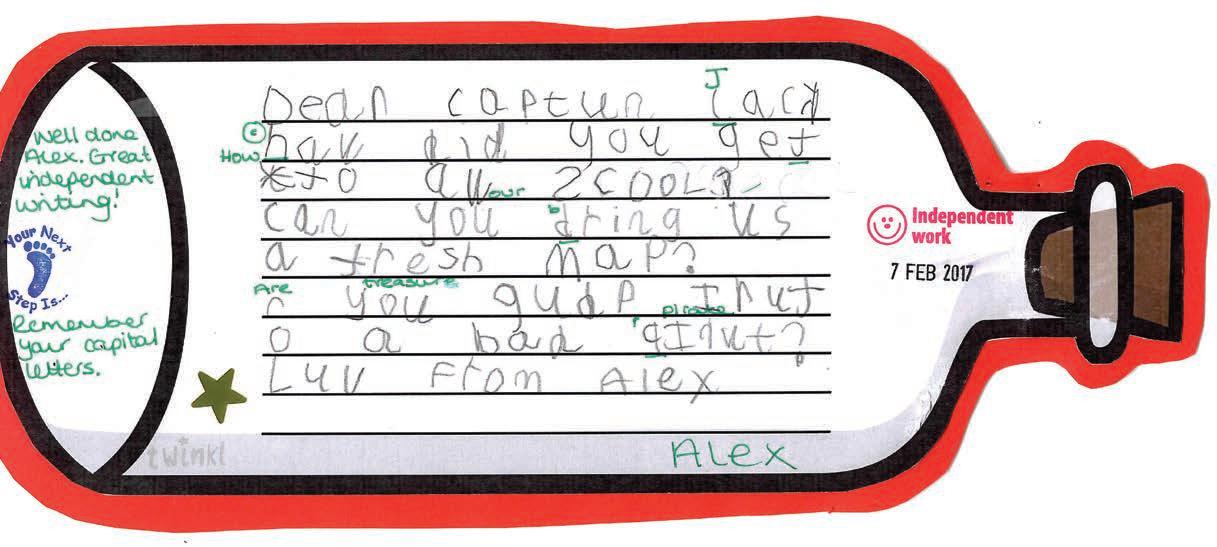 Well done
Alex. Great
independent
writing!
Your Next
Step Is...
Remember
your capital
letters.
J
Dear captun Jack
c
How
hav did you get
to all scool?
our
can you dring us
b
a fresh map?
Are
treasure
r you gudp
pirate
o a bad
Luv From Alex
Alex
Independent
work
7 FEB 2017
twinkl